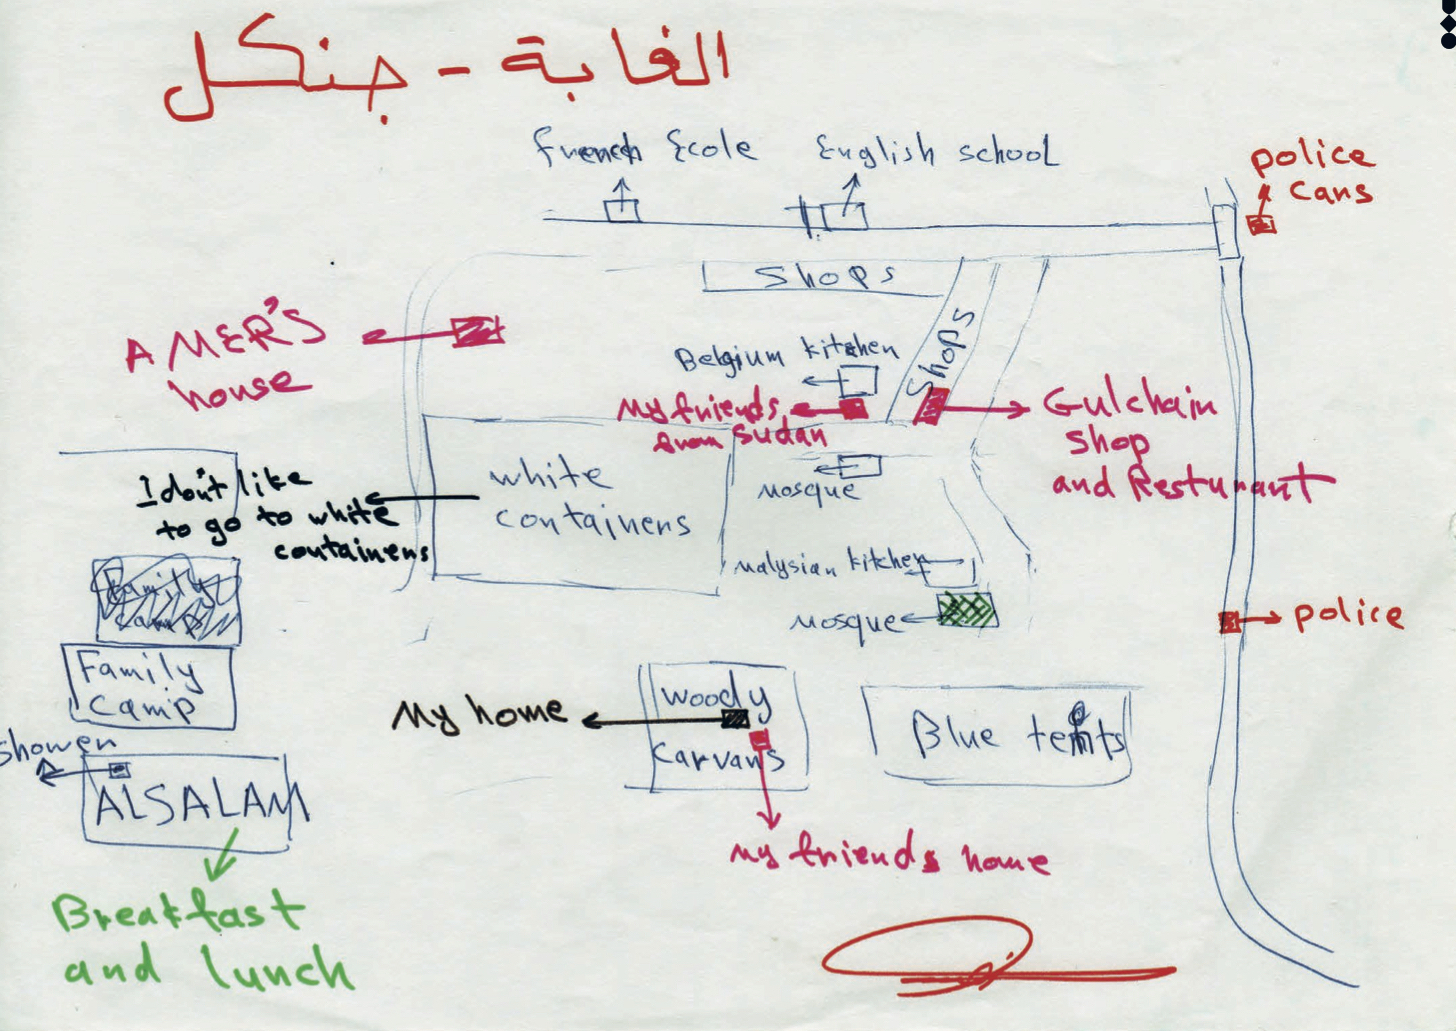 الغابة - جنكل
French École
English school
police
cars
Shops
AMER'S
house
Shops
Belgium kitchen
My friends
from Sudan
Gulchain
shop
and Resturant
white
containers
mosque
I don't like
to go to white
containers
Malysian kitchen
mosque
police
Family
Camp
My home
woody
carvans
Blue tents
shower
ALSALAM
My friends home
Breakfast
and lunch